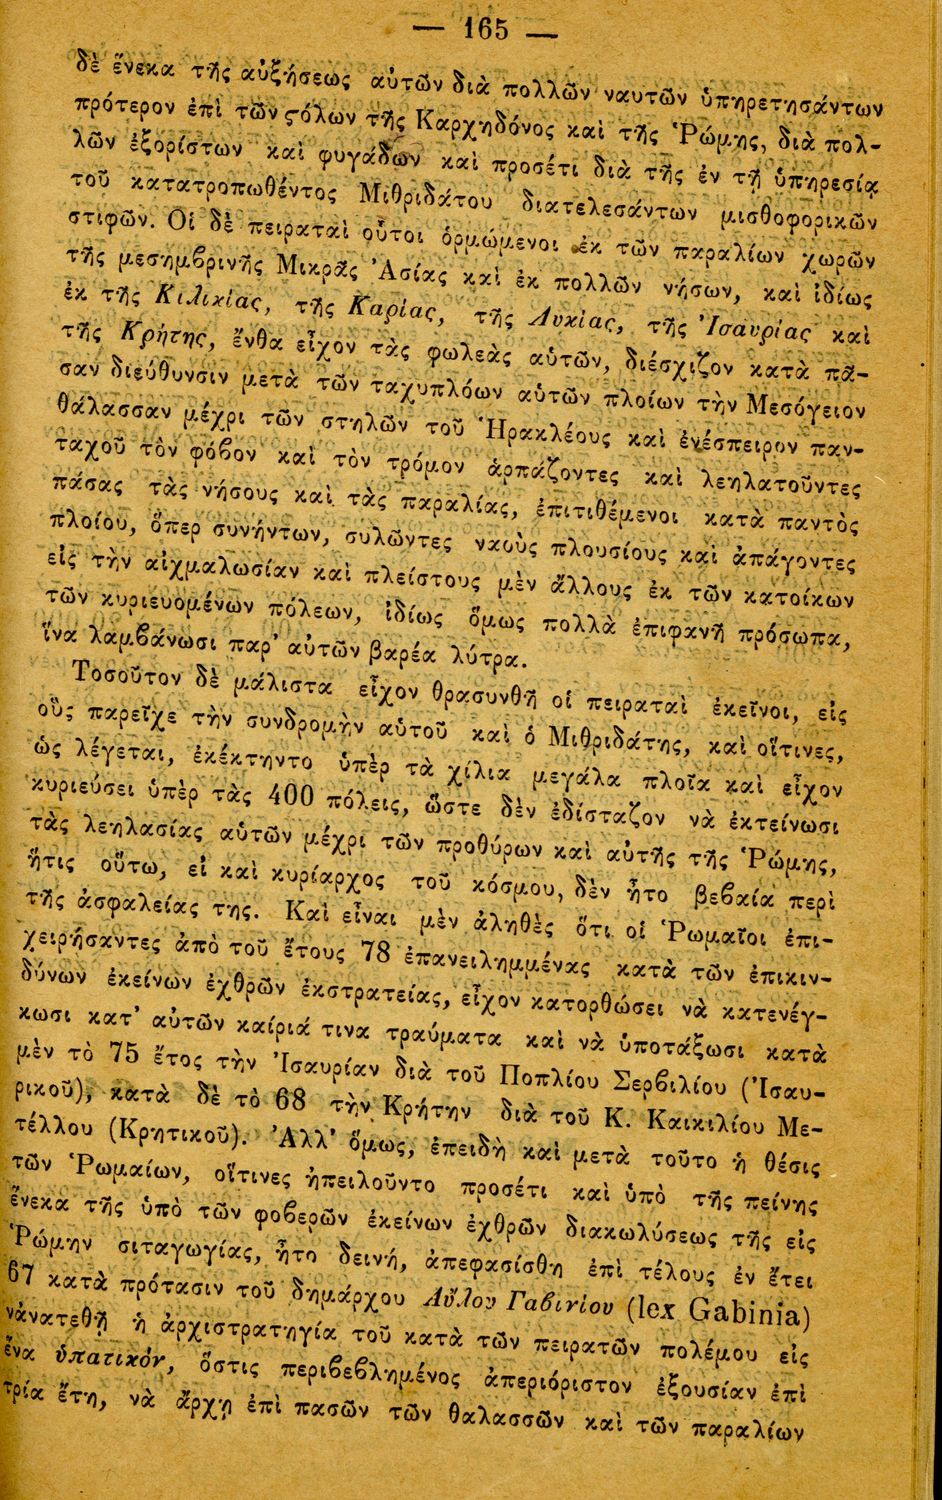 — 165 —
δὲ ἕνεκα τῆς αὐξήσεως αὐτῶν διὰ πολλῶν ναυτῶν ὑπηρετησάντων
πρότερον ἐπὶ τῶν ϛόλων τῆς Καρχηδόνος καὶ τῆς Ῥώμης, διὰ πολ-
λῶν ἐξορίστων καὶ φυγάδων καὶ προσέτι διὰ τῆς ἐν τῇ ὑπηρεσίᾳ
τοῦ κατατροπωθέντος Μιθριδάτου διατελεσάντων μισθοφορικῶν
στιφῶν. Οἱ δὲ πειραταὶ οὗτοι ὁρμώμενοι ἐκ τῶν παραλίων χωρῶν
τῆς μεσημβρινῆς Μικρᾶς Ἀσίας καὶ ἐκ πολλῶν νήσων, καὶ ἰδίως
ἐκ τῆς Κιλικίας, τῆς Καρίας, τῆς Λυκίας, τῆς Ἰσαυρίας καὶ
τῆς Κρήτης, ἔνθα εἶχον τὰς φωλεὰς αὑτῶν, διέσχιζον κατὰ πᾶ-
σαν διεύθυνσιν μετὰ τῶν ταχυπλόων αὑτῶν πλοίων τὴν Μεσόγειον
θάλασσαν μέχρι τῶν στηλῶν τοῦ Ἡρακλέους καὶ ἐνέσπειρον παν-
ταχοῦ τὸν φόβον καὶ τὸν τρόμον ἁρπάζοντες καὶ λεηλατοῦντες
πάσας τὰς νήσους καὶ τὰς παραλίας, ἐπιτιθέμενοι κατὰ παντὸς
πλοίου, ὅπερ συνήντων, συλῶντες ναοὺς πλουσίους καὶ ἀπάγοντες
εἰς τὴν αἰχμαλωσίαν καὶ πλείστους μὲν ἄλλους ἐκ τῶν κατοίκων
τῶν κυριευομένων πόλεων, ἰδίως ὅμως πολλὰ ἐπιφανῆ πρόσωπα,
ἵνα λαμβάνωσι παρ' αὐτῶν βαρέα λύτρα.
Τοσοῦτον δὲ μάλιστα εἶχον θρασυνθῆ οἱ πειραταὶ ἐκεῖνοι, εἰς
οὓς παρεῖχε τὴν συνδρομὴν αὑτοῦ καὶ ὁ Μιθριδάτης, καὶ οἵτινες,
ὡς λέγεται, ἐκέκτηντο ὑπὲρ τὰ χίλια μεγάλα πλοῖα καὶ εἶχον
κυριεύσει ὑπὲρ τὰς 400 πόλεις, ὥστε δὲν ἐδίσταζον νὰ ἐκτείνωσι
τὰς λεηλασίας αὑτῶν μέχρι τῶν προθύρων καὶ αὐτῆς τῆς Ῥώμης,
ἥτις οὕτω, εἰ καὶ κυρίαρχος τοῦ κόσμου, δὲν ἦτο βεβαία περὶ
τῆς ἀσφαλείας της. Καὶ εἶναι μὲν ἀληθὲς ὅτι οἱ Ῥωμαῖοι ἐπι-
χειρήσαντες ἀπὸ τοῦ ἔτους 78 ἐπανειλημμένας κατὰ τῶν ἐπικιν-
δύνων ἐκείνων ἐχθρῶν ἐκστρατείας, εἶχον κατορθώσει νὰ κατενέγ-
κωσι κατ' αὐτῶν καίριά τινα τραύματα καὶ νὰ ὑποτάξωσι κατὰ
μὲν τὸ 75 ἔτος τὴν Ἰσαυρίαν διὰ τοῦ Ποπλίου Σερβιλίου (Ἰσαυ-
ρικοῦ), κατὰ δὲ τὸ 68 τὴν Κρήτην διὰ τοῦ Κ. Καικιλίου Με-
τέλλου (Κρητικοῦ). Ἀλλ' ὅμως, ἐπειδὴ καὶ μετὰ τοῦτο ἡ θέσις
τῶν Ῥωμαίων, οἵτινες ἠπειλοῦντο προσέτι καὶ ὑπὸ τῆς πείνης
ἕνεκα τῆς ὑπὸ τῶν φοβερῶν ἐκείνων ἐχθρῶν διακωλύσεως τῆς εἰς
Ῥώμην σιταγωγίας, ἦτο δεινή, ἀπεφασίσθη ἐπὶ τέλους ἐν ἔτει
67 κατὰ πρότασιν τοῦ δημάρχου Αὔλου Γαβινίου (lex Gabinia)
νἀνατεθῇ ἡ ἀρχιστρατηγία τοῦ κατὰ τῶν πειρατῶν πολέμου εἰς
ἕνα ὑπατικόν, ὅστις περιβεβλημένος ἀπεριόριστον ἐξουσίαν ἐπὶ
τρία ἔτη, νὰ ἄρχῃ ἐπὶ πασῶν τῶν θαλασσῶν καὶ τῶν παραλίων